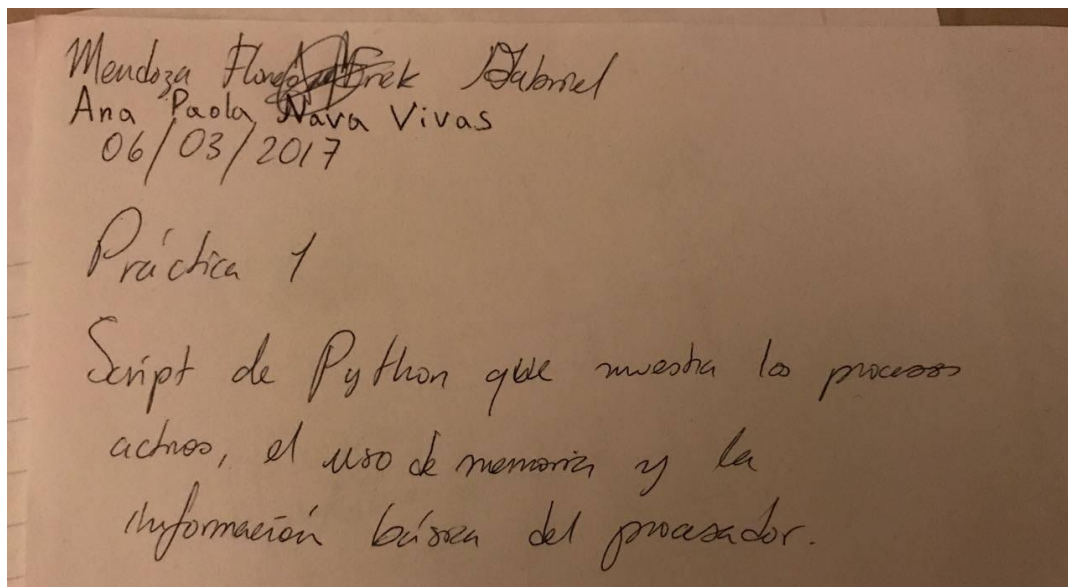 Mendoza Flores Erek Gabriel
Ana Paola Nava Vivas
06/03/2017
Práctica 1
Script de Python que muestra los procesos
activos, el uso de memoria y la
información básica del procesador.